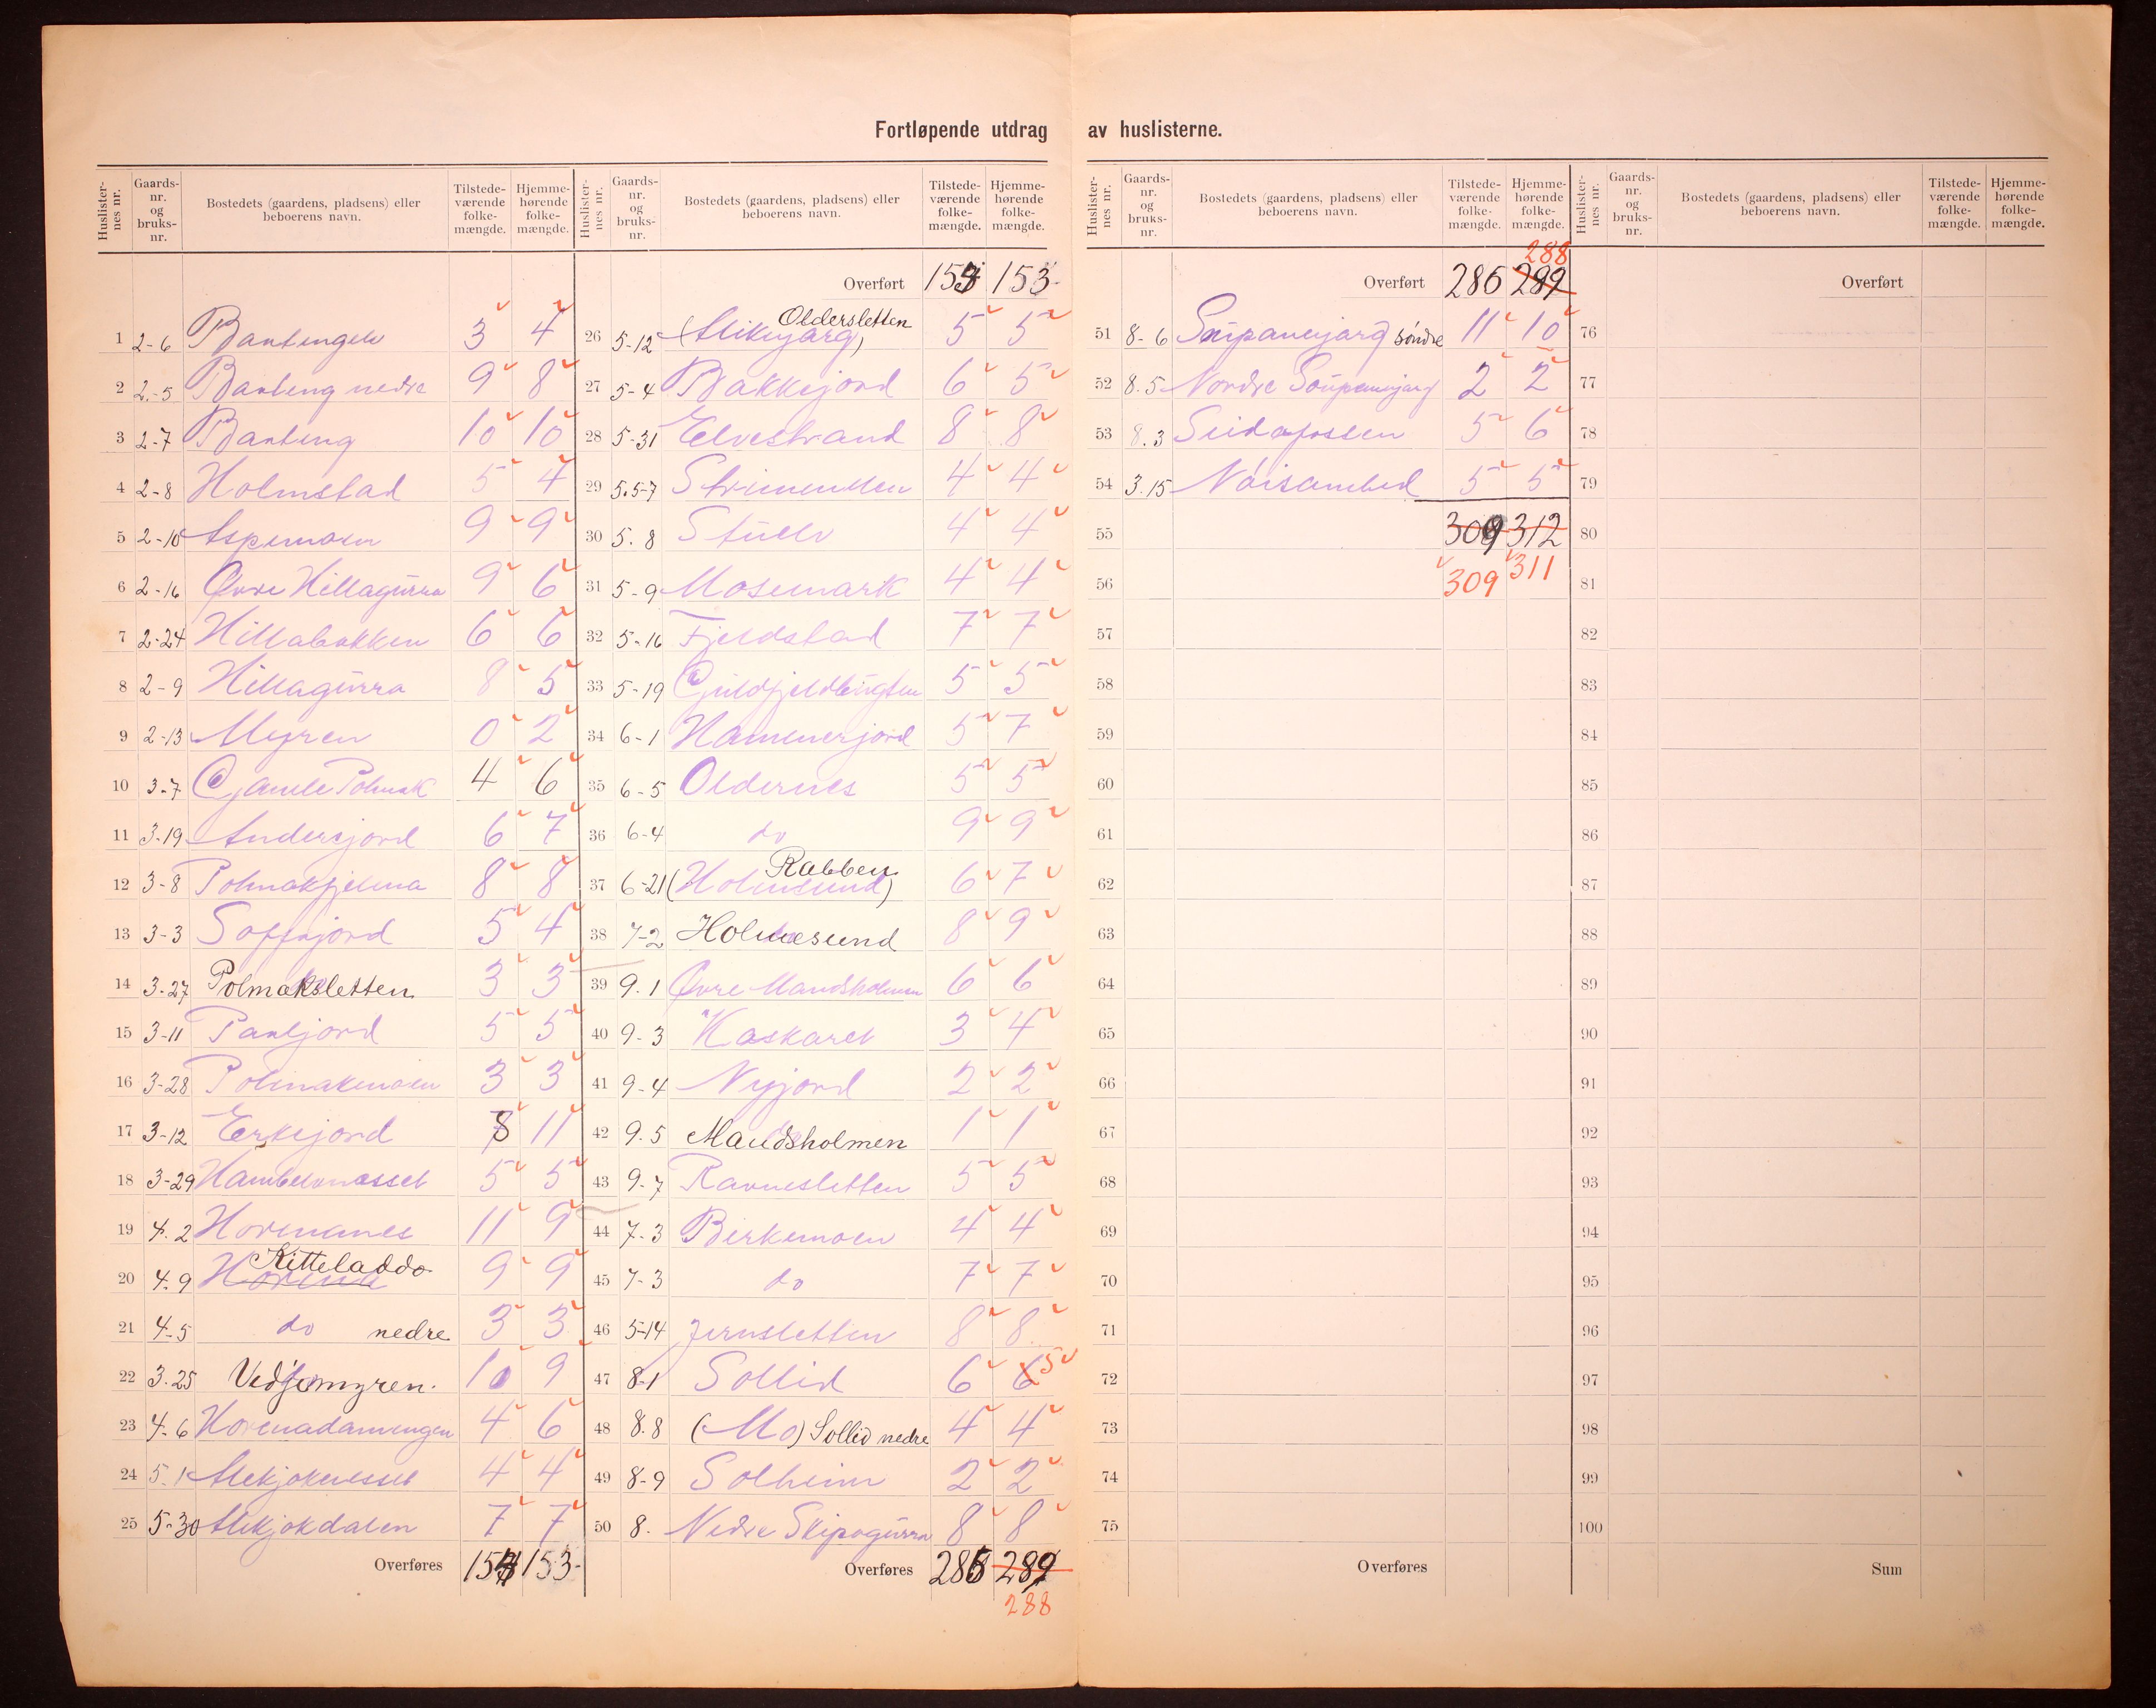 Fortløpende utdrag av huslisterne.
Huslisternes nr. Gaards-nr. og bruks-nr. Bostedets (gaardens, pladsens) eller beboerens navn. Tilstedeværende folkemængde. Hjemmehørende folkemængde.
1 2-6 3 4
2 2-5 nedre 9 8
3 2-7 10 10
4 2-8 Holmstad 5 4
5 2-10 Aspemoen 9 9
6 2-16 Øvre Hillagurra 9 6
7 2-24 Hillabakken 6 6
8 2-9 Hillagurra 8 5
9 2-13 Myren 0 2
10 3-7 Gamle Polmak 4 6
11 3-19 Andersjord 6 7
12 3-8 Polmakfjelma 8 8
13 3-3 Soffijord 5 4
14 3-27 Polmaksletten 3 3
15 3-11 Pauljord 5 5
16 3-28 Polmakmoen 3 3
17 3-12 Erkejord 8 11
18 3-29 5 5
19 4.2 Hormanes 11 9
20 4.9 Kitteladdo Horma 9 9
21 4-5 do nedre 3 3
22 3.25 Vidjemyren. 10 9
23 4.6 4 6
24 5.1 Alekjoknesset 4 4
25 5-30 Alekjokdalen 7 7
Overføres 153-
Huslisternes nr. Gaards-nr. og bruks-nr. Bostedets (gaardens, pladsens) eller beboerens navn. Tilstedeværende folkemængde. Hjemmehørende folkemængde.
Overført 153-
26 5-12 Oldersletten 5 5
27 5-4 Bakkejord 6 5
28 5-31 Elvestrand 8 8
29 5.5-7 4 4
30 5.8 4 4
31 5-9 Mosemark 4 4
32 5-16 Fjeldstad 7 7
33 5-19 Guldfjeldbugten 5 5
34 6-1 Hammerjord 5 7
35 6-5 Oldernes 5 5
36 6-4 do 9 9
37 6-21 Rabben (Holmesund) 6 7
38 7-2 Holmesund 8 9
39 9.1 Øvre Maudsholmen 6 6
40 9-3 Kaskaret 3 4
41 9-4 Nyjord 2 2
42 9.5 Maudsholmen 1 1
43 9-7 Ravnesletten 5 5
44 7-3 Birkemoen 4 4
45 7-3 do 7 7
46 5-14 Jernsletten 8 8
47 8-1 Sollid 6 6 5
48 8.8 (Mo) Sollid nedre 4 4
49 8-9 Solheim 2 2
50 8. Nedre Skipagurra 8 8
Overføres 286 289
288
Huslisternes nr. Gaards-nr. og bruks-nr. Bostedets (gaardens, pladsens) eller beboerens navn. Tilstedeværende folkemængde. Hjemmehørende folkemængde.
288
Overført 286 289
51 8-6 søndre 11 10
52 8.5 Nordre 2 2
53 8.3 Seidafossen 5 6
54 3.15 5 5
55 309 312
56 309 311
57
58
59
60
61
62
63
64
65
66
67
68
69
70
71
72
73
74
75
Overføres
Huslisternes nr. Gaards-nr. og bruks-nr. Bostedets (gaardens, pladsens) eller beboerens navn. Tilstedeværende folkemængde. Hjemmehørende folkemængde.
Overført
76
77
78
79
80
81
82
83
84
85
86
87
88
89
90
91
92
93
94
95
96
97
98
99
100
Sum